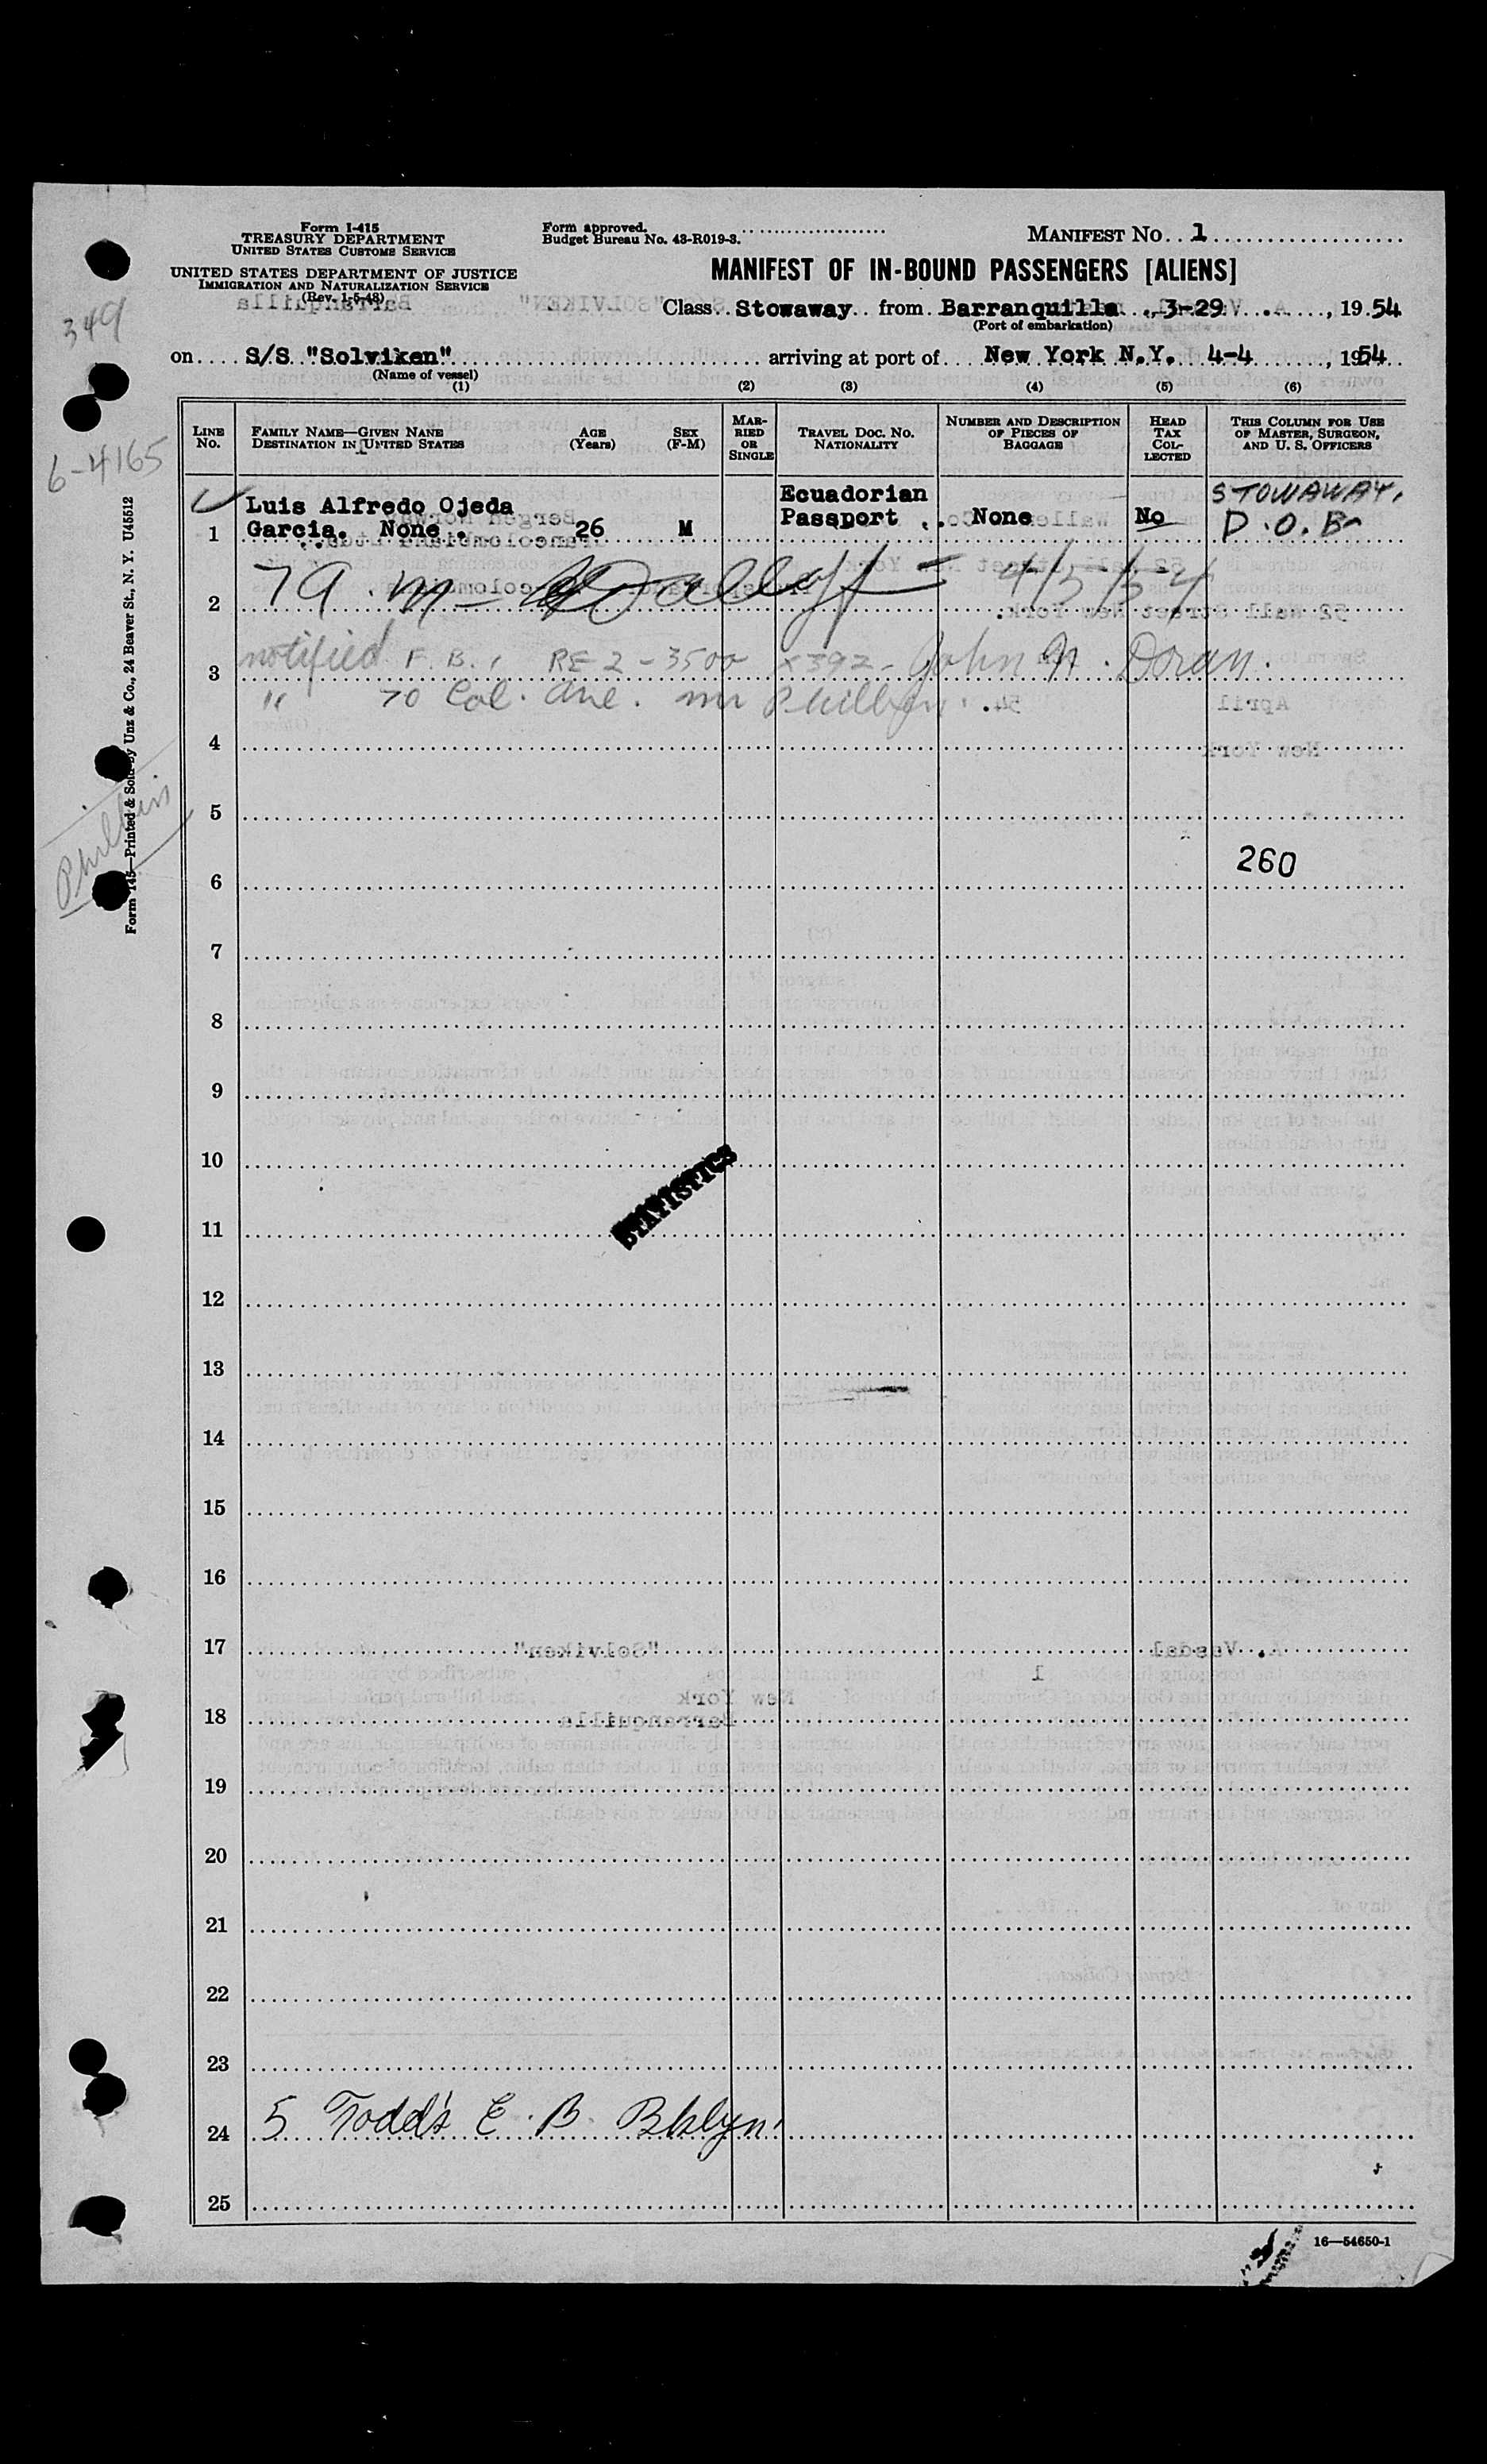 Form I-415
TREASURY DEPARTMENT
UNITED STATES CUSTOMS SERVICE
UNITED STATES DEPARTMENT OF JUSTICE
IMMIGRATION AND NATURALIZATION SERVICE
(Rev. 1-5-48)
Form approved.
Budget Bureau No. 43-R019-3.
MANIFEST NO. 1
MANIFEST OF IN-BOUND PASSENGERS [ALIENS]
Class Stowaway from Barranquilla 3-29, 1954
(Port of embarkation)
on S/S "Solviken" arriving at port of New York N.Y. 4-4, 1954
(Name of vessel)
(1) (2) (3) (4) (5) (6)
LINE NO.
FAMILY NAME—GIVEN NAME
DESTINATION IN UNITED STATES
AGE (Years)
SEX (F-M)
MARRIED OR SINGLE
TRAVEL DOC. NO. NATIONALITY
NUMBER AND DESCRIPTION OF PIECES OF BAGGAGE
HEAD TAX COLLECTED
THIS COLUMN FOR USE OF MASTER, SURGEON, AND U. S. OFFICERS
349
6-4165
1 Luis Alfredo Ojeda Garcia. None. 26 M Ecuadorian Passport. None No STOWAWAY. D.O.B.
2 79 4/5/54
3 notified F.B.I RE 2-3500 x392- John N. Doran.
" 70 Col. Ave. Mr Philbin.
4
5
Philbin
Form 145—Printed & Sold by Unz & Co., 24 Beaver St., N. Y. U45512
260
6
7
8
9
10
STATISTICS
11
12
13
14
15
16
17
18
19
20
21
22
23
24 5 Todd's E. B. Bklyn.
25
16—54650-1